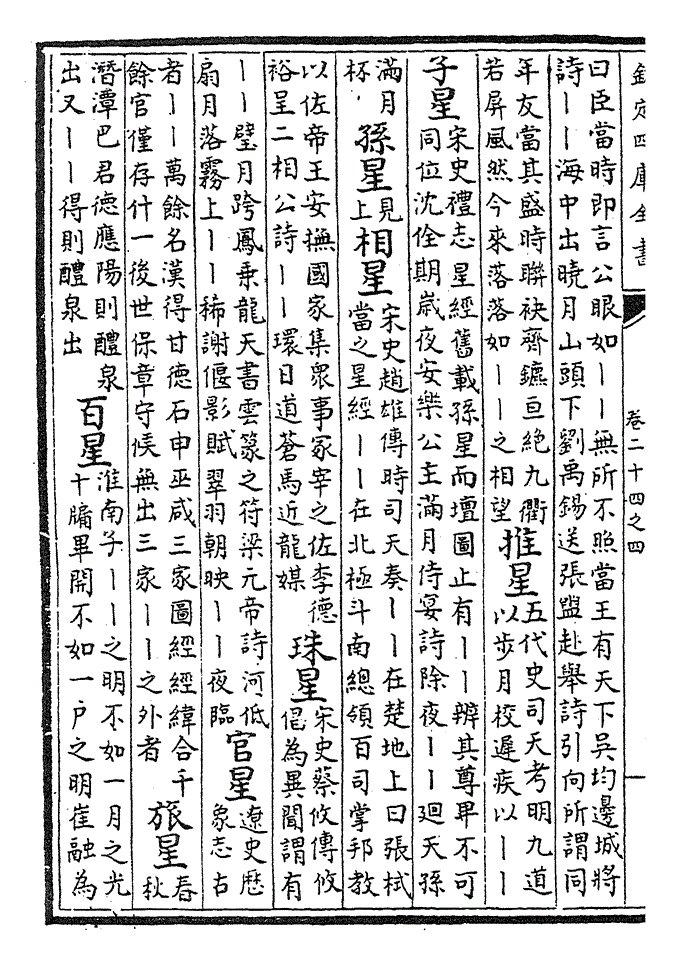 欽定四庫全書
卷二十四之四
曰臣當時即言公眼如丨丨無所不照當王有天下吳均邊城將
詩丨丨海中出曉月山頭下劉禹錫送張盥赴舉詩引向所謂同
年友當其盛時聯袂齊鑣亘絶九衢
若屏風然今來落落如丨丨之相望
推星
五代史司天考明九道
以步月校遲疾以丨丨
子星
宋史禮志星經舊載孫星而壇圖止有丨丨辨其尊卑不可
同位沈佺期歳夜安樂公主滿月侍宴詩除夜丨丨廻天孫
滿月
杯
孫星
見
上
相星
宋史趙雄傳時司天奏丨丨在楚地上曰張栻
當之星經丨丨在北極斗南總領百司掌邦教
以佐帝王安撫國家集衆事冢宰之佐李德
裕呈二相公詩丨丨環日道蒼馬近龍媒
珠星
宋史蔡攸傳攸
倡為異聞謂有
丨丨璧月跨鳳乗龍天書雲篆之符梁元帝詩河低
扇月落霧上丨丨稀謝偃影賦翠羽朝映丨丨夜臨
官星
遼史歴
象志古
者丨丨萬餘名漢得甘德石申巫咸三家圖經經緯合千
餘官僅存什一後世保章守候無出三家丨丨之外者
旅星
春
秋
潛潭巴君德應陽則醴泉
出又丨丨得則醴泉出
百星
淮南子丨丨之明不如一月之光
十牖畢開不如一户之明崔融為